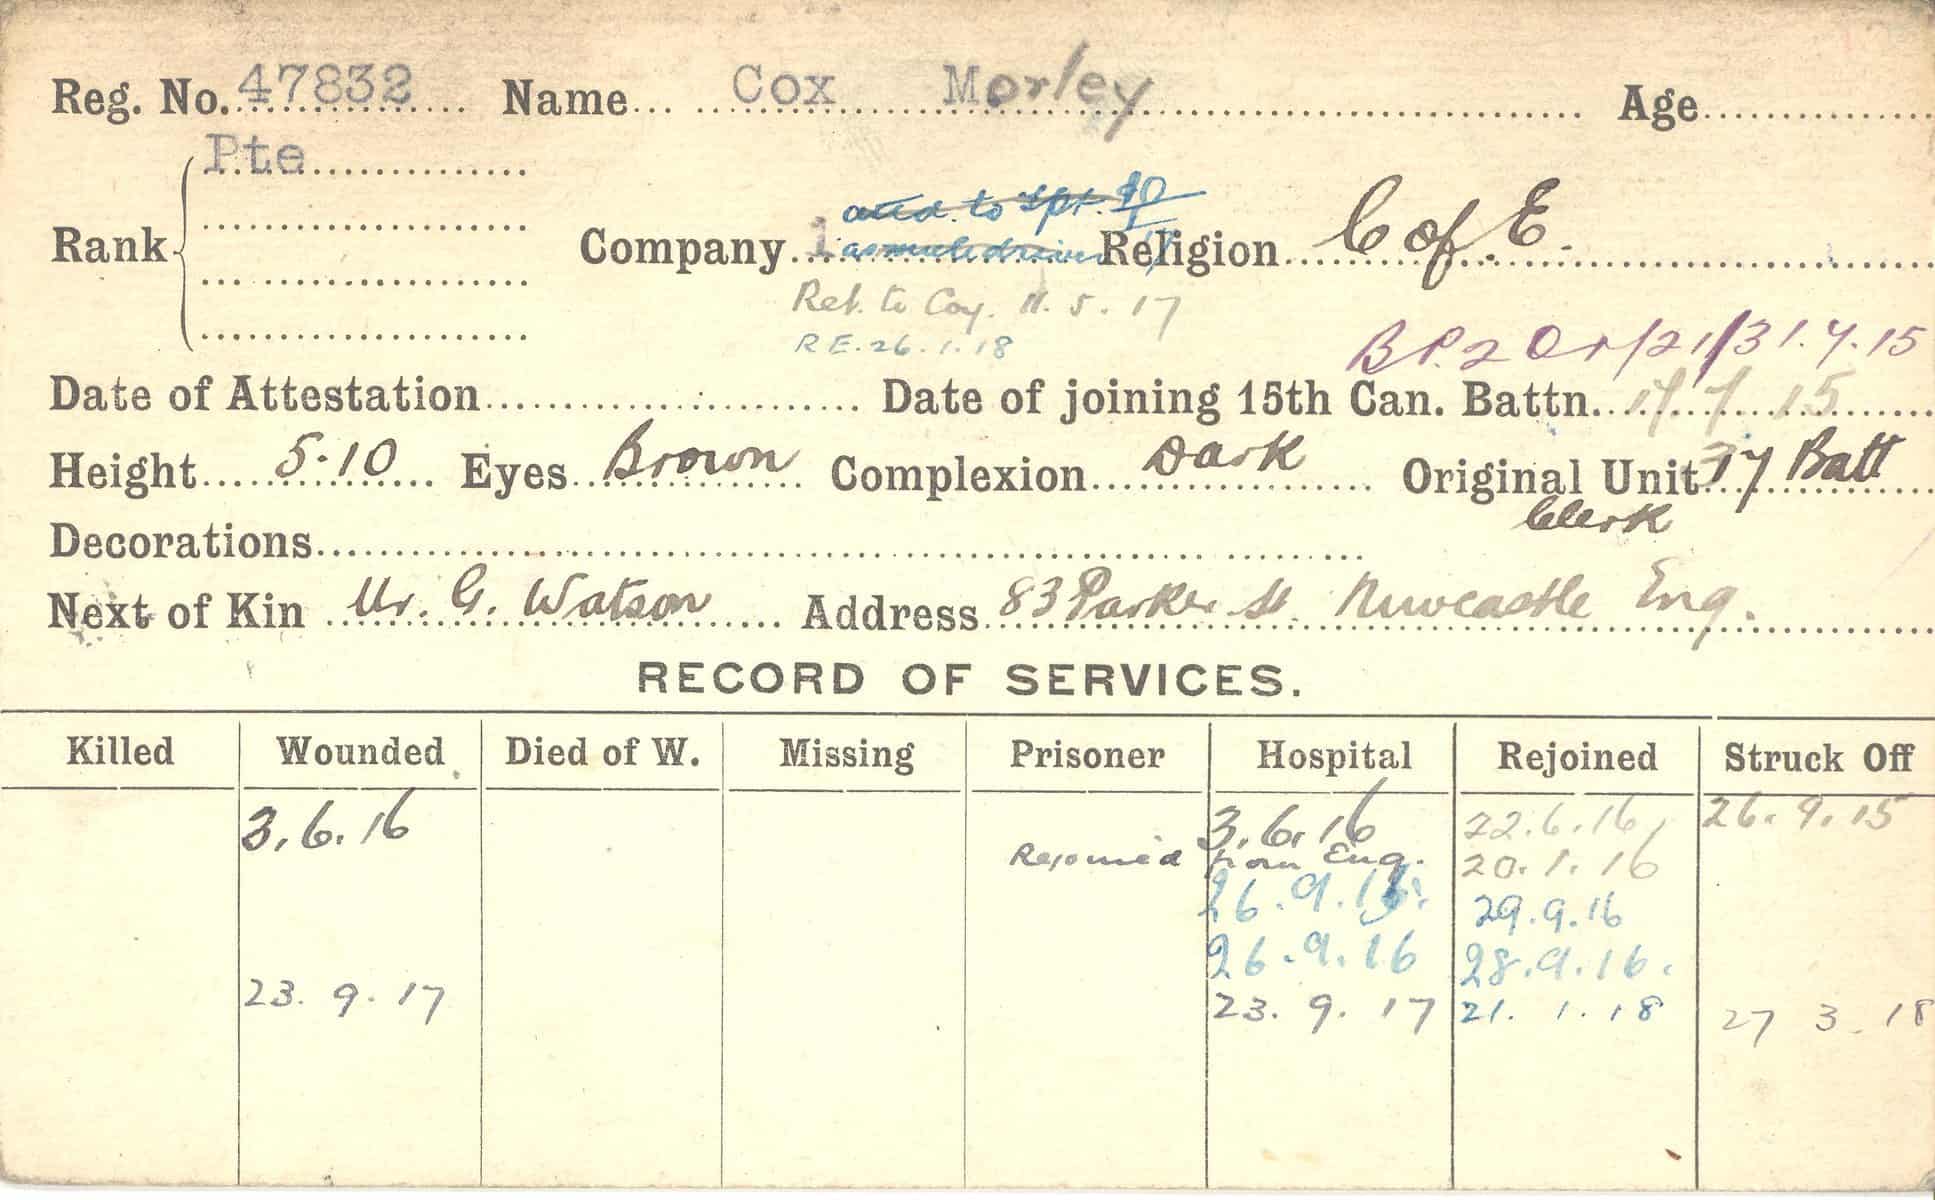 Reg. No. 47832 Name Cox Morley Age
Pte
Rank
attd. to Tpt.
Company 1 as mule driver Religion C of E.
Ret. to Coy. 11. 5. 17
R E. 26. 1. 18
B P. 2 Or/21/31. 7. 15
Date of Attestation Date of joining 15th Can. Battn. 15
Height 5.10 Eyes Brown Complexion Dark Original Unit 17 Batt
Clerk
Decorations
Next of Kin Mr. G. Watson Address 83 Parker St. Newcastle Eng.
RECORD OF SERVICES.
Killed Wounded Died of W. Missing Prisoner Hospital Rejoined Struck Off
3. 6. 16 3. 6. 16 22. 6. 16 26. 9. 15
Rejoined from Eng. 20. 1. 16
26. 9. 29. 9. 16
26. 9. 16 28. 9. 16.
23. 9. 17 23. 9. 17 21. 1. 18 27 3. 18